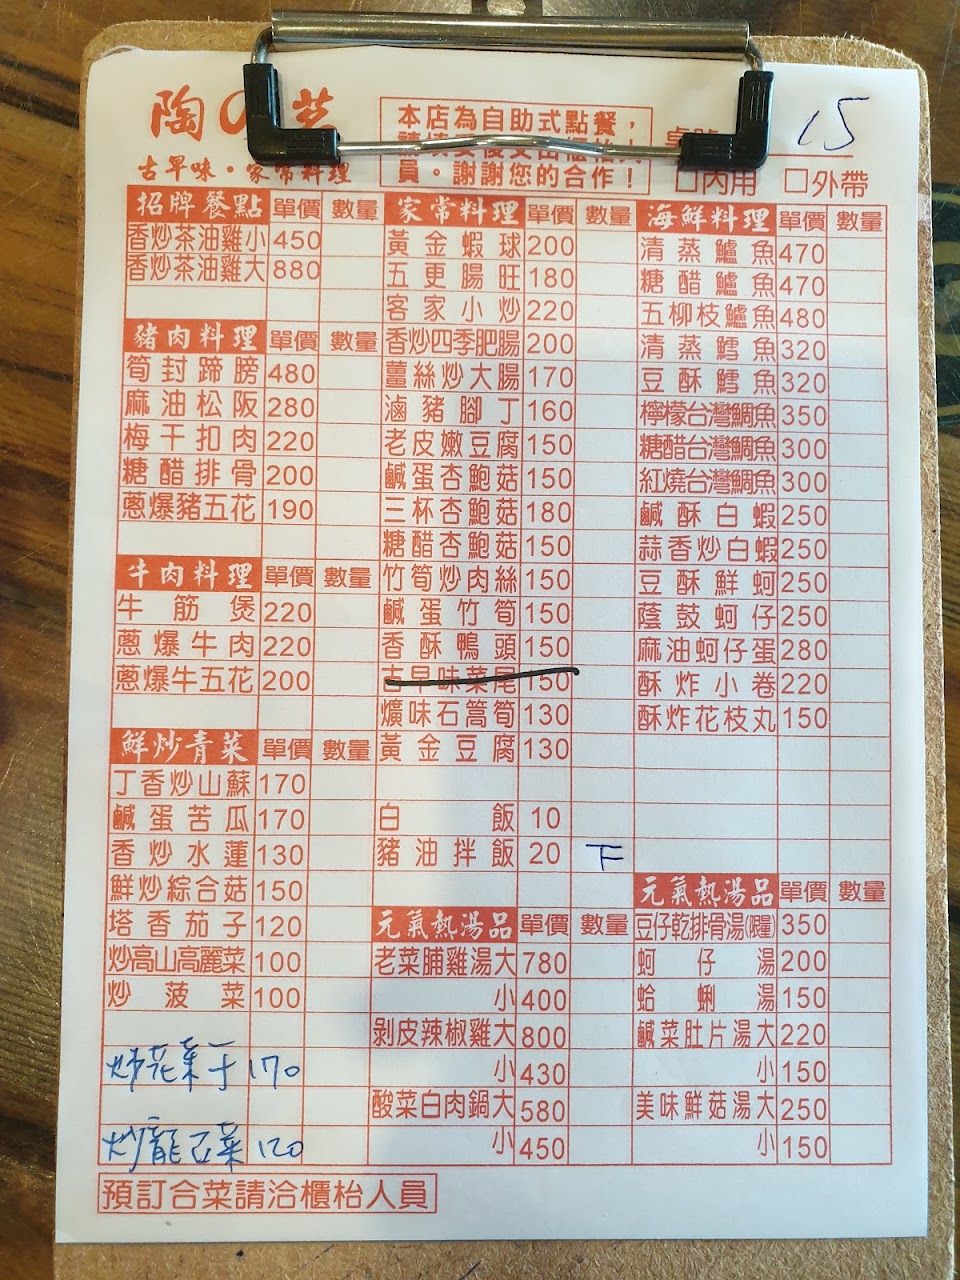 陶の芝
古早味・家常料理
本店為自助式點餐，
員。謝謝您的合作！
15
□內用 □外帶
招牌餐點 單價 數量
香炒茶油雞小 450
香炒茶油雞大 880
豬肉料理 單價 數量
筍封蹄膀 480
麻油松阪 280
梅干扣肉 220
糖醋排骨 200
蔥爆豬五花 190
牛肉料理 單價 數量
牛筋煲 220
蔥爆牛肉 220
蔥爆牛五花 200
鮮炒青菜 單價 數量
丁香炒山蘇 170
鹹蛋苦瓜 170
香炒水蓮 130
鮮炒綜合菇 150
塔香茄子 120
炒高山高麗菜 100
炒菠菜 100
炒花菜干 170
炒龍鬚菜 120
家常料理 單價 數量
黃金蝦球 200
五更腸旺 180
客家小炒 220
香炒四季肥腸 200
薑絲炒大腸 170
滷豬腳丁 160
老皮嫩豆腐 150
鹹蛋杏鮑菇 150
三杯杏鮑菇 180
糖醋杏鮑菇 150
竹筍炒肉絲 150
鹹蛋竹筍 150
香酥鴨頭 150
古早味菜尾 150
爌味石篙筍 130
黃金豆腐 130
白飯 10
豬油拌飯 20 下
元氣熱湯品 單價 數量
老菜脯雞湯大 780
小 400
剝皮辣椒雞大 800
小 430
酸菜白肉鍋大 580
小 450
海鮮料理 單價 數量
清蒸鱸魚 470
糖醋鱸魚 470
五柳枝鱸魚 480
清蒸鱈魚 320
豆酥鱈魚 320
檸檬台灣鯛魚 350
糖醋台灣鯛魚 300
紅燒台灣鯛魚 300
鹹酥白蝦 250
蒜香炒白蝦 250
豆酥鮮蚵 250
蔭鼓蚵仔 250
麻油蚵仔蛋 280
酥炸小卷 220
酥炸花枝丸 150
元氣熱湯品 單價 數量
豆仔乾排骨湯(限量) 350
蚵仔湯 200
蛤蜊湯 150
鹹菜肚片湯大 220
小 150
美味鮮菇湯大 250
小 150
預訂合菜請洽櫃枱人員